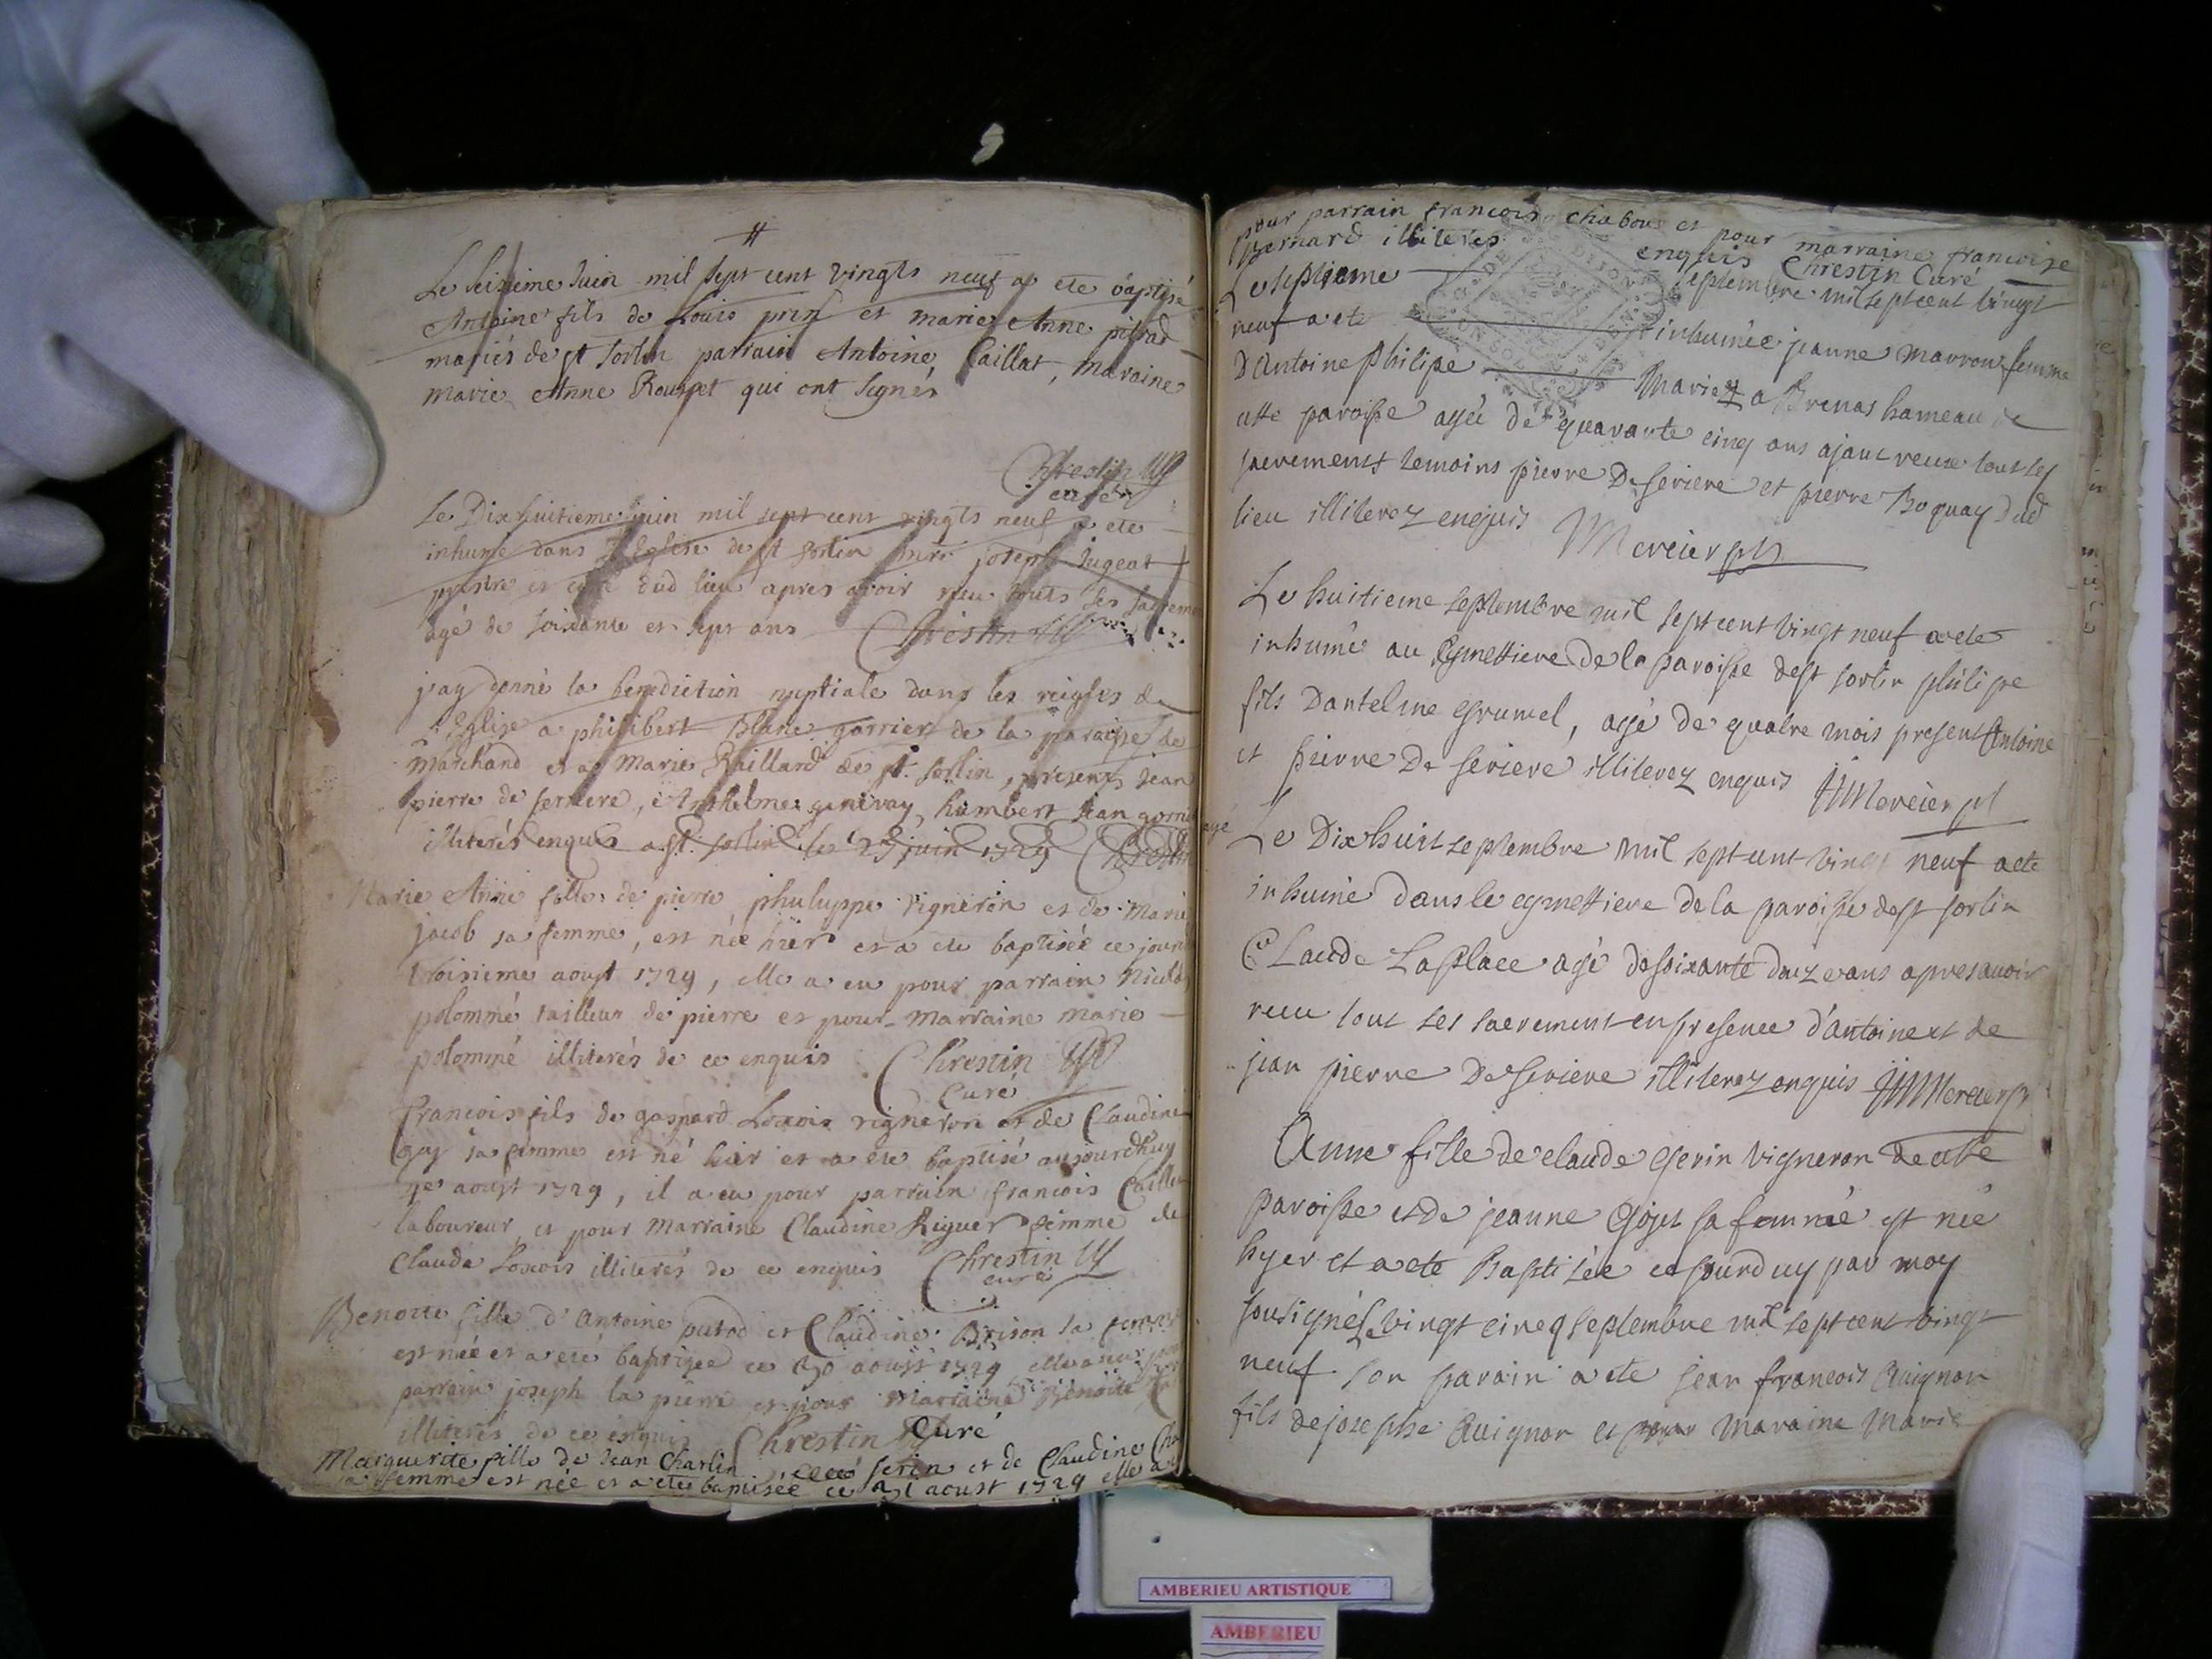 Le seisieme Juin mil sept cent vingts neuf a ete baptisé
Antoine fils de Louis prin et marie Anne pitrad
mariés de st sorlin parrain Antoine Caillat, maraine
marie Anne Rousset qui ont signés
Chrestin
curé
Le Dixhuitieme juin mil sept cent vingts neuf a ete
inhumé dans l'Eglise de st sorlin joseph Jugeat
prestre et curé dud lieu apres avoir receu touts ses sacrem
agé de soixante et sept ans Chrestin
j'ay donné la benediction nuptiale dans les reigles de
l'Eglise a philibert Blanc garrier de la paroisse de
marchand et a Marie Raillard de st. sorlin, presents jean
pierre de serriere, Anthelme genevay, humbert Jean
illiterés enquis a st. sorlin le 23 juin 1729 Chrestin
Marie Anne fille de pierre phuluppe vigneron et de Marie
jacob sa femme, est née hier et a ete baptisée ce jour
troisieme aoust 1729, elle a eu pour parrain Nicolas
polommé tailleur de pierre et pour marraine marie
polommé illiterés de ce enquis Chrestin
Curé
francois fils de gaspard Loxois vigneron et de Claudine
guy sa femme est né hier et a ete baptisé aujourdhuy
9e aoust 1729, il a eu pour parrain francois Caillat
laboureur et pour marraine Claudine Riguer femme de
Claude Loxois illiterés de ce enquis Chrestin
curé
Benoite fille d'antoine putod et Claudine Brison sa femme
est née et a eté baptizée ce 30 aoust 1729 elle a eu pour
parrain joseph la pierre et pour marraine Benoite
illiterés de ce enquis Chrestin Curé
Marguerite fille de Jean Charlin serin et de Claudine
sa femme est née et a ete baptisée ce 31 aoust 1729 elle a
pour parrain francois chabou et pour marraine francoise
Bernard illiterés enquis Chrestin Curé
Le septieme septembre mil sept cent vingt
neuf a ete inhumée jeanne marron femme
D'antoine Philipe Marie a Brenas hameau de
cette paroisse agée de quarante cinq ans ajant receu tout les
sacrements temoins pierre De seriere et pierre Boquay Dud
lieu illiterez enquis Mercier
Le huitieme septembre mil sept cent vingt neuf a ete
inhumé au Cymettiere de la paroisse de st sorlin philipe
fils D'antelme Grumel, agé de quatre mois present Antoine
et pierre De seriere illiterez enquis Mercier
Le Dixhuit septembre mil sept cent vingt neuf a ete
inhumé dans le cymettiere de la paroisse de st sorlin
Claude Laplace agé de soixante douze ans apres avoir
receu tout ses sacrement en presence d'antoine et de
jean pierre De seriere illiterez enquis Mercier
Anne fille de claude Gerin vigneron de cette
paroisse et de jeanne Gojet sa femme est née
hyer et a ete Baptisée ce jourduy par moy
sousigné Le vingt cinq septembre mil sept cent vingt
neuf son parain a ete jean francois Avignon
fils de josephe Avignon et maraine Marie
AMBERIEU ARTISTIQUE
AMBERIEU